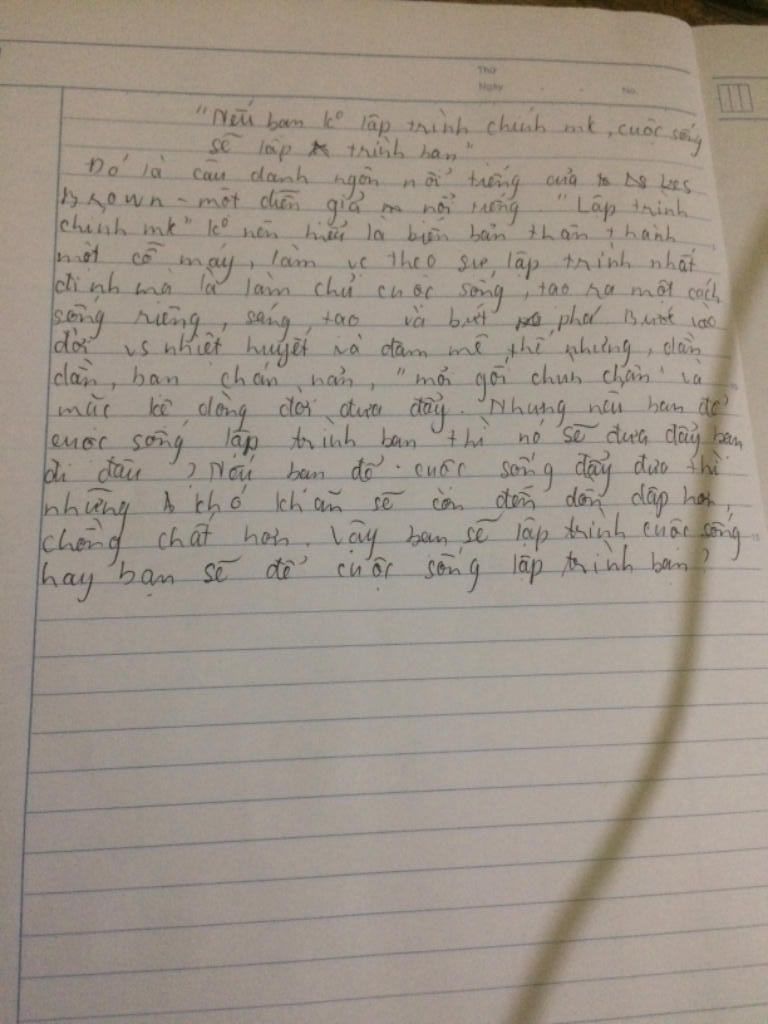 Thứ
Ngày . . No.
"Nếu bạn k° lập trình chính mk, cuộc sống
sẽ lập trình bạn"
Đó là câu danh ngôn nổi tiếng của Les
Brown - một diễn giả nổi tiếng. "Lập trình
chính mk" k° nên hiểu là biến bản thân thành
một cỗ máy, làm vc theo sự lập trình nhất
định mà là làm chủ cuộc sống, tạo ra một cách
sống riêng, sáng tạo và bứt phá. Bước vào
đời vs nhiệt huyết và đam mê, thế nhưng, dần
dần, bạn chán nản, "mỏi gối chùn chân" và
mặc kệ dòng đời đưa đẩy. Nhưng nếu bạn để
cuộc sống lập trình bạn thì nó sẽ đưa đẩy bạn
đi đâu? Nếu bạn để cuộc sống đẩy đưa thì
những khó khăn sẽ còn đến dồn dập hơn,
chồng chất hơn. Vậy bạn sẽ lập trình cuộc sống
hay bạn sẽ để cuộc sống lập trình bạn?